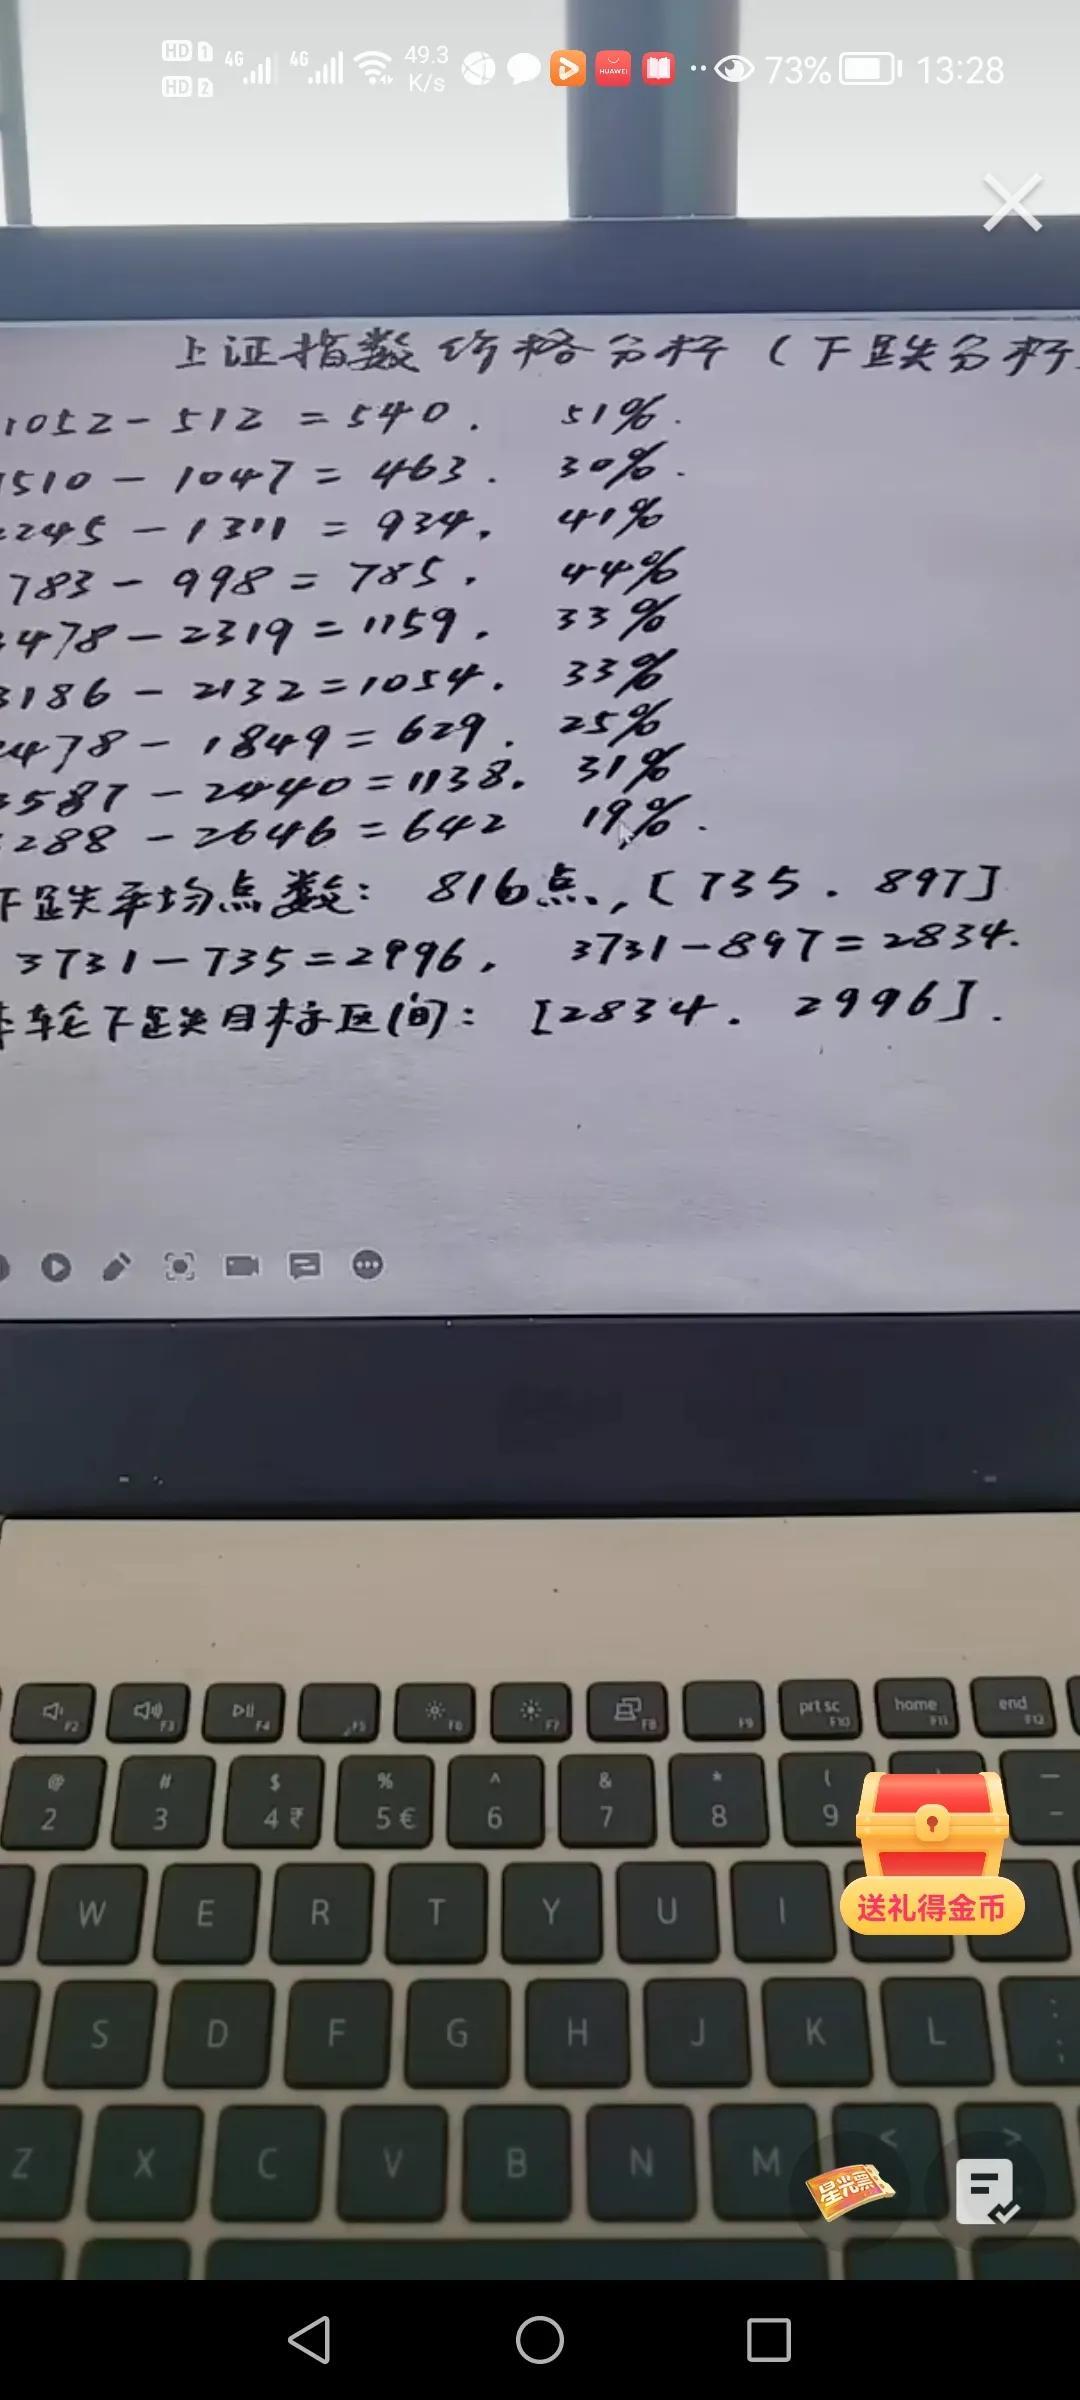 HD 1 4G 4G 49.3 K/s HUAWEI 73% 13:28
HD 2
上证指数价格分析(下跌分析
1052-512=540. 51%.
1510-1047=463. 30%.
2245-1311=934, 41%
783-998=785, 44%
3478-2319=1159, 33%
3186-2132=1054. 33%
2478-1849=629. 25%
3587-2440=1138. 31%
3288-2646=642 19%.
下跌平均点数: 816点,[735. 897]
3731-735=2996, 3731-897=2834.
本轮下跌目标区(间): [2834. 2996].
F2 F3 F4 F5 F6 F7 F8 F9 prt sc F10 home F11 end F12
@ 2 # 3 $ 4 ₹ % 5 € ^ 6 & 7 * 8 ( 9
W E R T Y U I
送礼得金币
S D F G H J K L : ;
Z X C V B N M < >
星光票